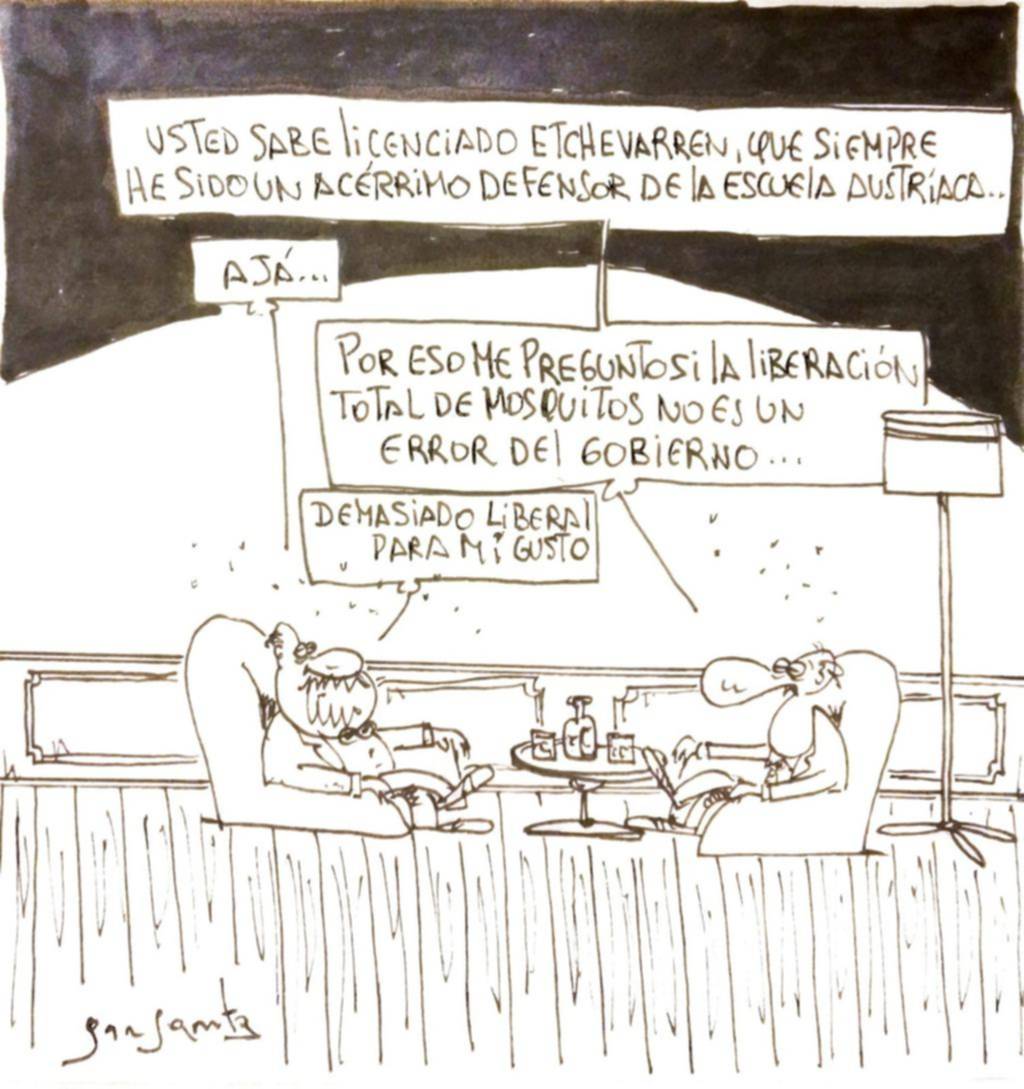 USTED SABE LICENCIADO ETCHEVARREN, QUE SIEMPRE
HE SIDO UN ACÉRRIMO DEFENSOR DE LA ESCUELA AUSTRÍACA..
AJÁ...
POR ESO ME PREGUNTO SI LA LIBERACIÓN
TOTAL DE MOSQUITOS NO ES UN
ERROR DEL GOBIERNO...
DEMASIADO LIBERAL
PARA MI GUSTO